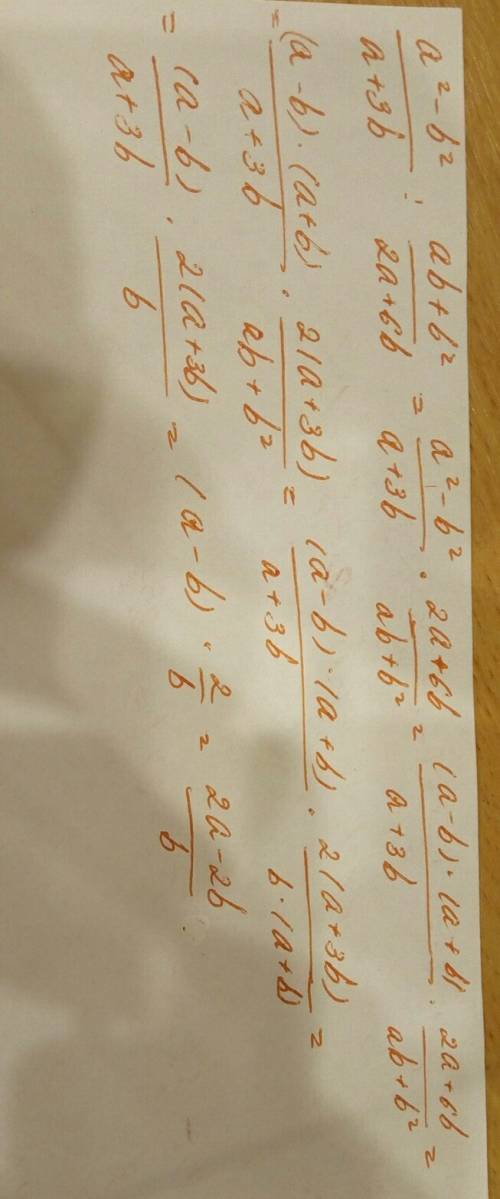 (a²-b²)/(a+3b) : (ab+b²)/(2a+6b) = (a²-b²)/(a+3b) · (2a+6b)/(ab+b²) = ((a-b)·(a+b))/(a+3b) · (2a+6b)/(ab+b²) =
= ((a-b)·(a+b))/(a+3b) · (2(a+3b))/(ab+b²) = ((a-b)·(a+b))/(a+3b) · (2(a+3b))/(b·(a+b)) =
= (a-b)/(a+3b) · (2(a+3b))/b = (a-b) · 2/b = (2a-2b)/b